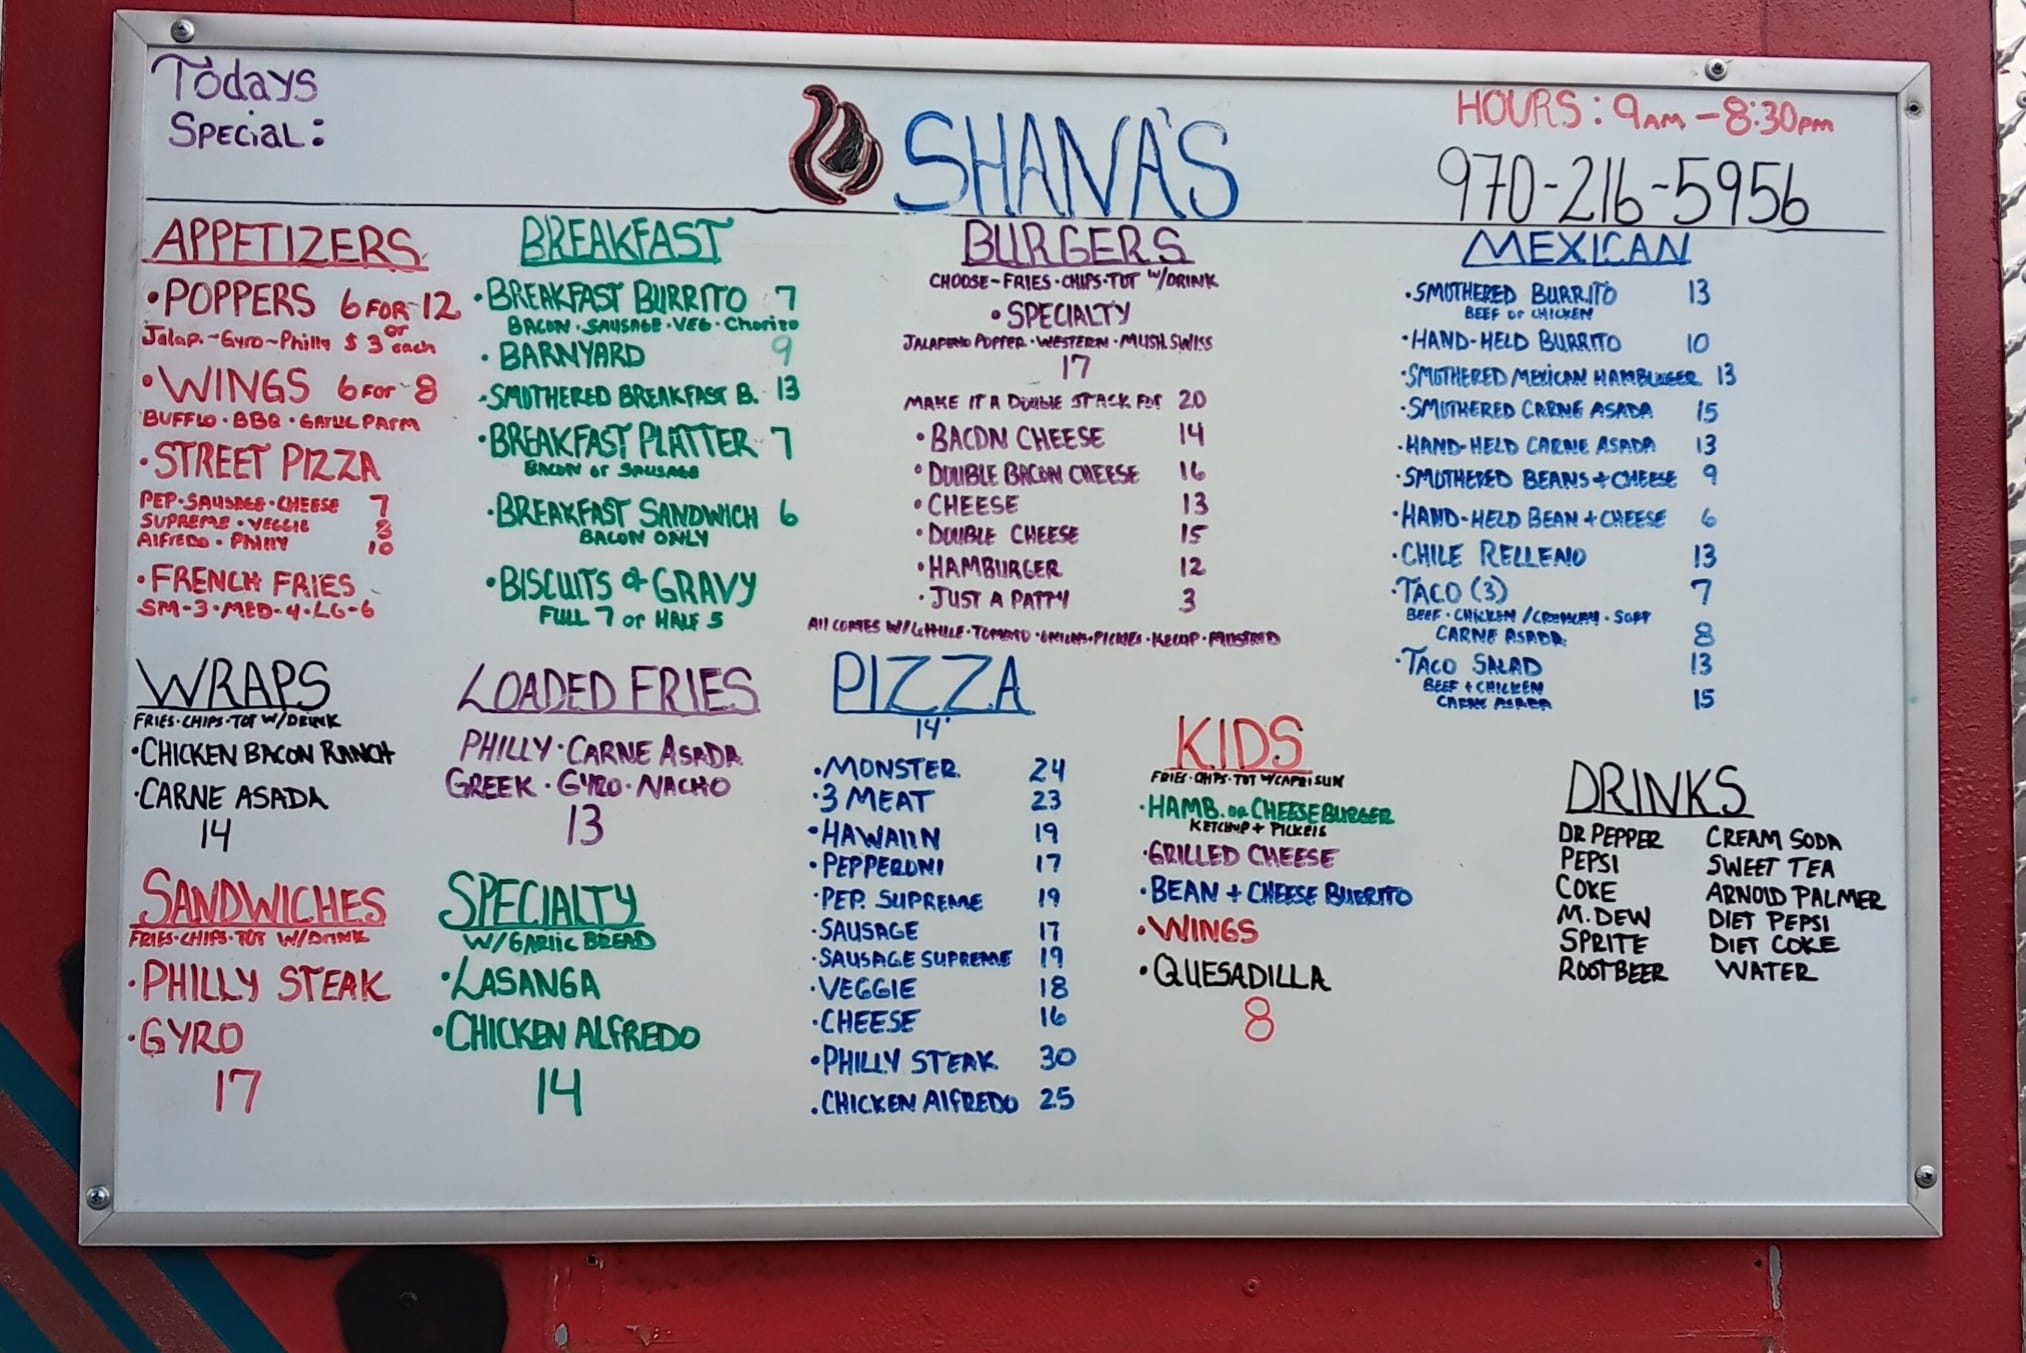 Todays
Special:
SHANA'S
HOURS: 9AM-8:30PM
970-216-5956
APPETIZERS
•POPPERS 6 FOR 12
or
Jalap.-Gyro-Philly $3 each
•WINGS 6 FOR 8
BUFFLO•BBQ•GARLIC PARM
•STREET PIZZA
PEP•SAUSAGE•CHEESE 7
SUPREME•VEGGIE 8
AlFREDO•PHILLY 10
•FRENCH FRIES
SM-3•MED-4•LG-6
BREAKFAST
•BREAKFAST BURRITO 7
BACON•SAUSAGE•VEG•Chorizo
•BARNYARD 9
•SMOTHERED BREAKFAST B. 13
•BREAKFAST PLATTER 7
BACON or SAUSAGE
•BREAKFAST SANDWICH 6
BACON ONLY
•BISCUITS & GRAVY
FULL 7 or HALF 5
BURGERS
CHOOSE-FRIES•CHIPS•TOT W/DRINK
•SPECIALTY
JALAPENO POPPER•WESTERN•MUSH SWISS
17
MAKE IT A DOUBLE STACK FOR 20
•BACON CHEESE 14
•DOUBLE BACON CHEESE 16
•CHEESE 13
•DOUBLE CHEESE 15
•HAMBURGER 12
•JUST A PATTY 3
All COMES W/ •TOMATO • •PICKLES• •
MEXICAN
•SMOTHERED BURRITO 13
BEEF or CHICKEN
•HAND-HELD BURRITO 10
•SMOTHERED MEXICAN HAMBURGER 13
•SMOTHERED CARNE ASADA 15
•HAND-HELD CARNE ASADA 13
•SMOTHERED BEANS+CHEESE 9
•HAND-HELD BEAN+CHEESE 6
•CHILE RELLENO 13
•TACO (3) 7
BEEF•CHICKEN/CRUNCHY•SOFT
CARNE ASADA 8
•TACO SALAD 13
BEEF+CHICKEN
CARNE ASADA 15
WRAPS
FRIES•CHIPS•TOT W/DRINK
•CHICKEN BACON RANCH
•CARNE ASADA
14
LOADED FRIES
PHILLY•CARNE ASADA
GREEK•GYRO•NACHO
13
SANDWICHES
FRIES•CHIPS•TOT W/DRINK
•PHILLY STEAK
•GYRO
17
SPECIALTY
W/GARlic BREAD
•LASANGA
•CHICKEN ALFREDO
14
PIZZA
14"
•MONSTER 24
•3 MEAT 23
•HAWAIIN 19
•PEPPERONI 17
•PEP. SUPREME 19
•SAUSAGE 17
•SAUSAGE SUPREME 19
•VEGGIE 18
•CHEESE 16
•PHILLY STEAK 30
•CHICKEN AlFREDO 25
KIDS
FRIES•CHIPS•TOT W/CAPRISUN
•HAMB. or CHEESEBURGER
KETCHUP + PICKELS
•GRILLED CHEESE
•BEAN + CHEESE BURRITO
•WINGS
•QUESADILLA
8
DRINKS
DR PEPPER CREAM SODA
PEPSI SWEET TEA
COKE ARNOLD PALMER
M.DEW DIET PEPSI
SPRITE DIET COKE
ROOTBEER WATER